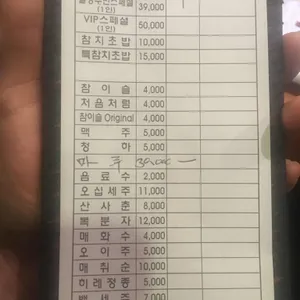 (1인) 39,000
VIP스페셜
(1인) 50,000
참치초밥 10,000
특참치초밥 15,000
참이슬 4,000
처음처럼 4,000
참이슬 Original 4,000
맥주 5,000
청하 5,000
음료수 2,000
오십세주 11,000
산사춘 8,000
복분자 12,000
매화수 4,000
오이주 5,000
매취순 10,000
히레정종 5,000
백세주 7,000